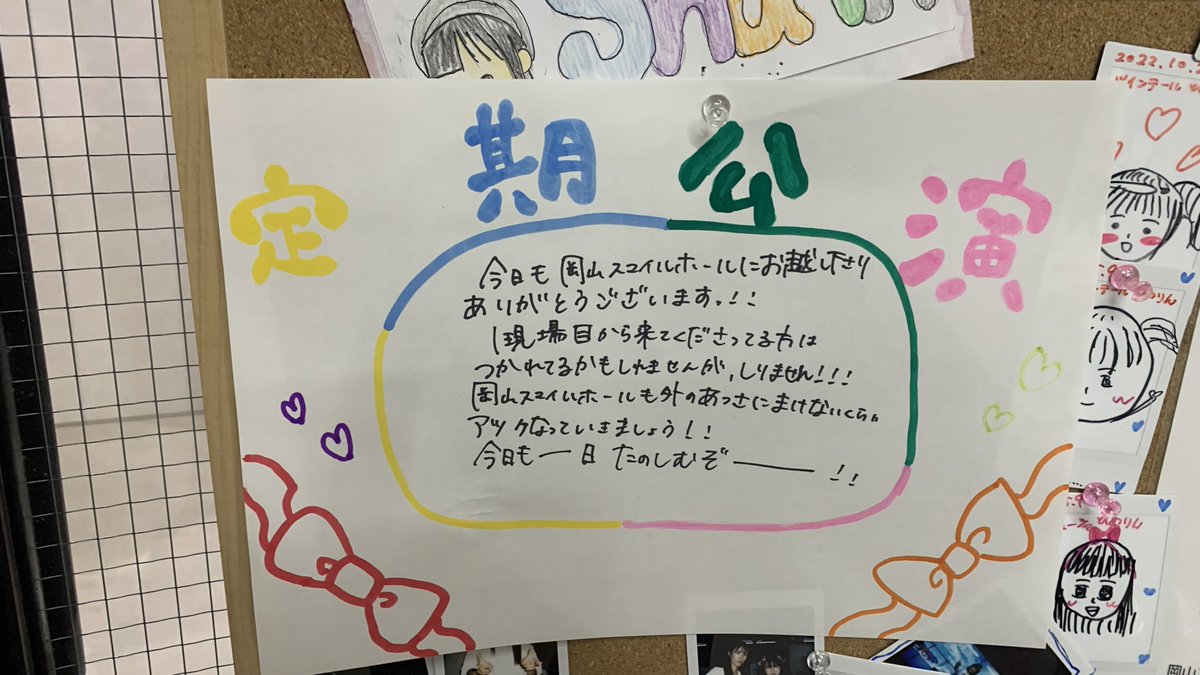 SHU
定期公演
今日も岡山スマイルホールにお越し下さり
ありがとうございますっ!!
1現場目から来てくださってる方は
つかれてるかもしれませんが、しりません!!!
岡山スマイルホールも外のあつさにまけないくらい
アツくなっていきましょう!!
今日も一日たのしむぞー!!
2022.10.
ツインテール
りん
岡山